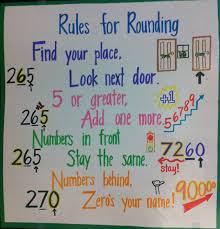 Rules for Rounding
Find your place,
265
Look next door.
5 or greater,
+1
265
Add one more.
Numbers in front
265
Stay the same.
7260
stay!
Numbers behind,
270
Zero's your name!